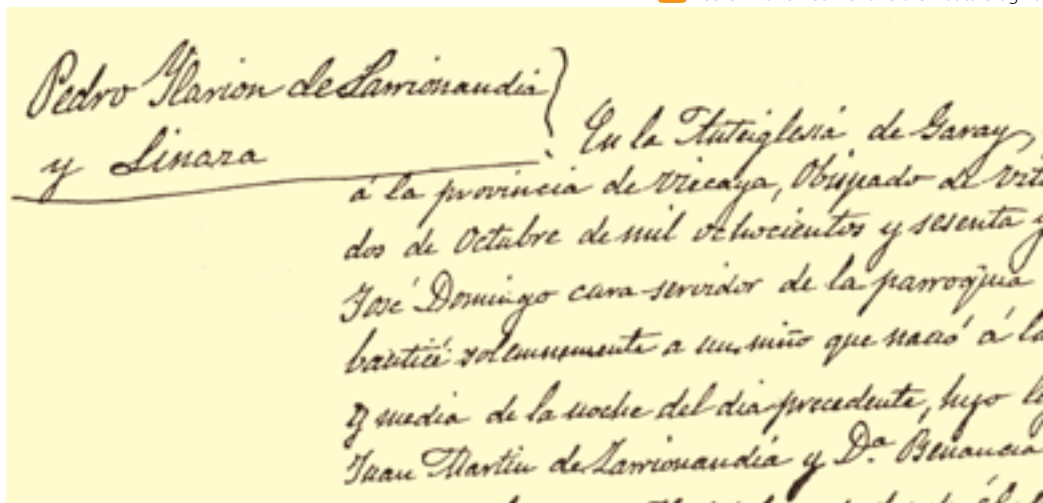 Pedro Ylarion de Larrionandia
y Linaza
En la Anteiglesia de Garay,
á la provincia de Vizcaya, Obispado de Vito
dos de Octubre de mil ochocientos y sesenta y
José Domingo cura servidor de la parroquia
bauticé solemnemente a un niño que nació á la
y media de la noche del dia precedente, hijo le
Juan Martin de Larrionandia y D.a Benancia